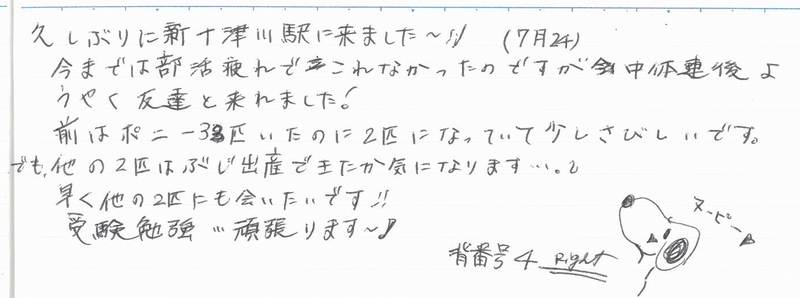 久しぶりに新十津川駅に来ました〜!! (7月24)
今までは部活疲れでこれなかったのですが中体連後よ
うやく友達と来れました!
前はポニー3匹いたのに2匹になっていて少しさびしいです。
でも、他の2匹はぶじ出産できたか気になります…。
早く他の2匹にも会いたいです!!
受験勉強 頑張ります〜♪
ヌーピー
背番号4 Right